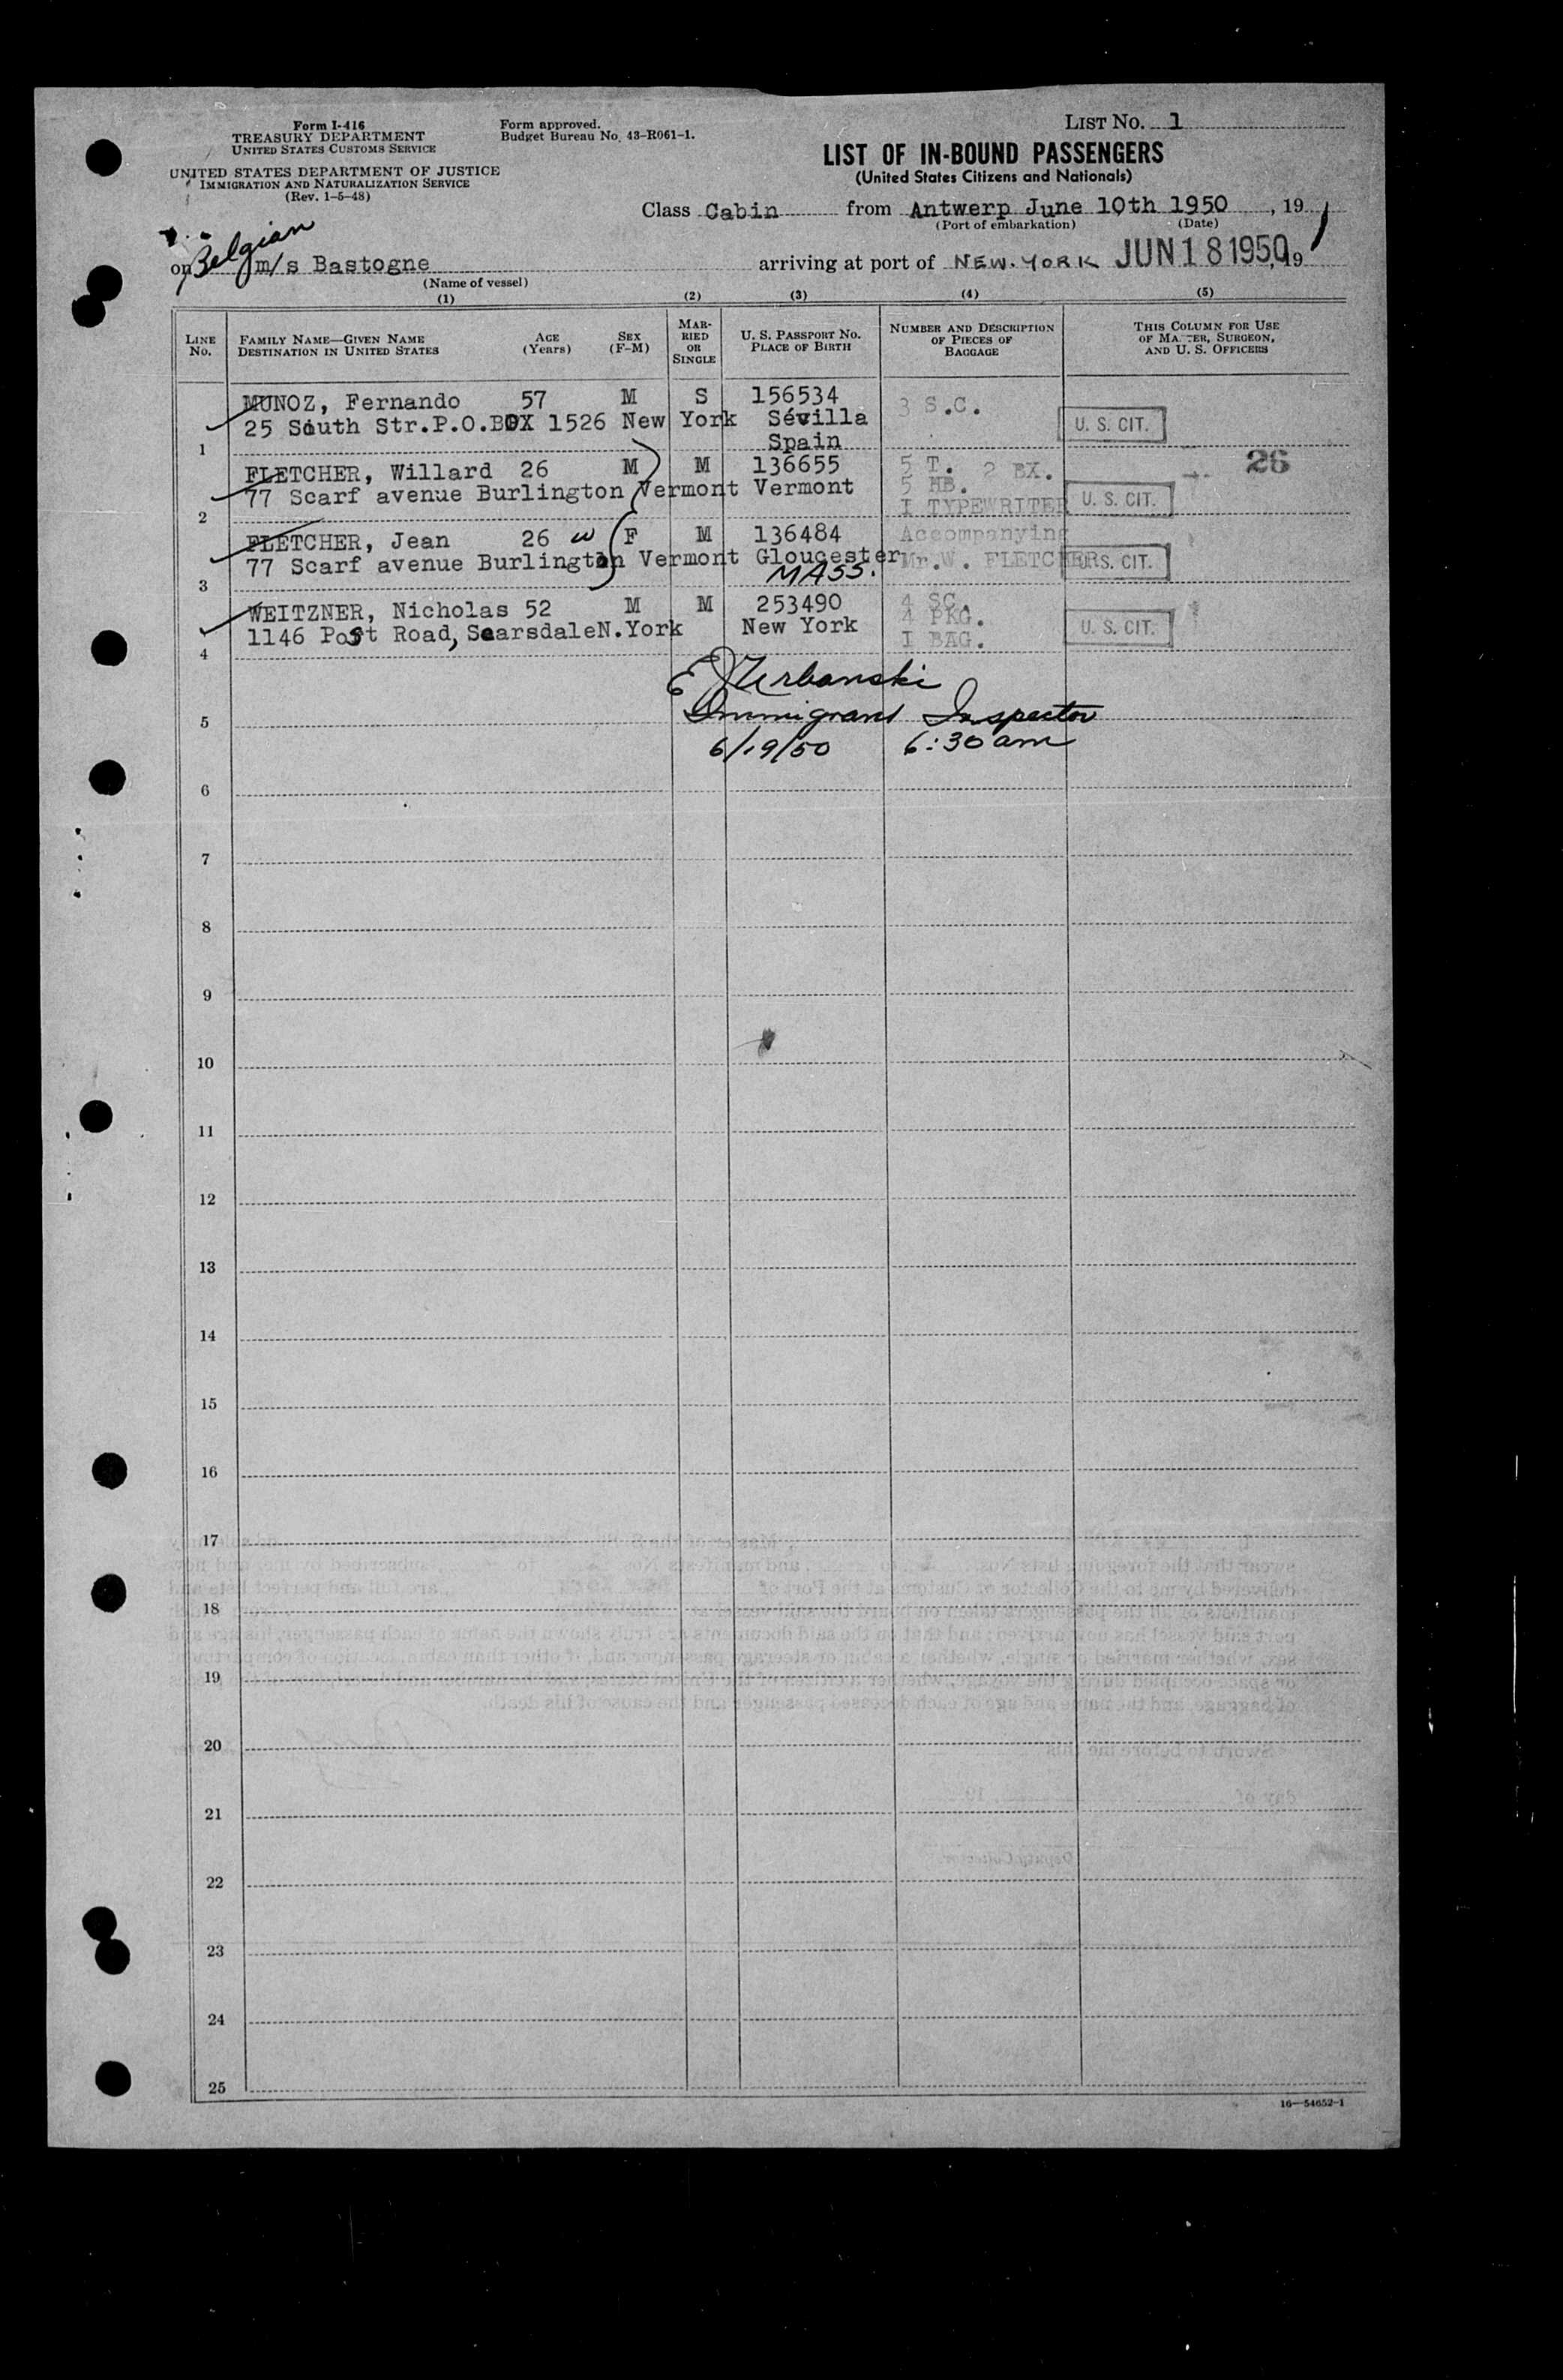 Form I-416
TREASURY DEPARTMENT
UNITED STATES CUSTOMS SERVICE
UNITED STATES DEPARTMENT OF JUSTICE
IMMIGRATION AND NATURALIZATION SERVICE
(Rev. 1-5-48)
Form approved.
Budget Bureau No. 43-R061-1.
LIST No. 1
LIST OF IN-BOUND PASSENGERS
(United States Citizens and Nationals)
Class Cabin from Antwerp June 10th 1950, 19
(Port of embarkation) (Date)
on Belgian m/s Bastogne arriving at port of NEW-YORK JUN 18 1950, 19
(Name of vessel)
(1) (2) (3) (4) (5)
LINE No.
FAMILY NAME—GIVEN NAME DESTINATION IN UNITED STATES
AGE (Years)
SEX (F-M)
MARRIED OR SINGLE
U. S. PASSPORT No. PLACE OF BIRTH
NUMBER AND DESCRIPTION OF PIECES OF BAGGAGE
THIS COLUMN FOR USE OF MASTER, SURGEON, AND U. S. OFFICERS
MUNOZ, Fernando 57 M S 156534 3 S.C.
25 South Str.P.O.BOX 1526 New York Sévilla U. S. CIT.
1 Spain
FLETCHER, Willard 26 M M 136655 5 T. 2 BX. 26
77 Scarf avenue Burlington Vermont Vermont 5 HB. U. S. CIT.
2 I TYPEWRITER
FLETCHER, Jean 26 w F M 136484 Accompanying
77 Scarf avenue Burlington Vermont Gloucester Mr.W. FLETCHER U. S. CIT.
3 MASS.
WEITZNER, Nicholas 52 M M 253490 4 SC.
4 PKG.
1146 Post Road, Scarsdale N.York New York I BAG. U. S. CIT.
4
E J Urbanski
5 Immigrant Inspector
6/19/50 6:30 am
6
7
8
9
10
11
12
13
14
15
16
17
18
19
20
21
22
23
24
25
16—54652-1